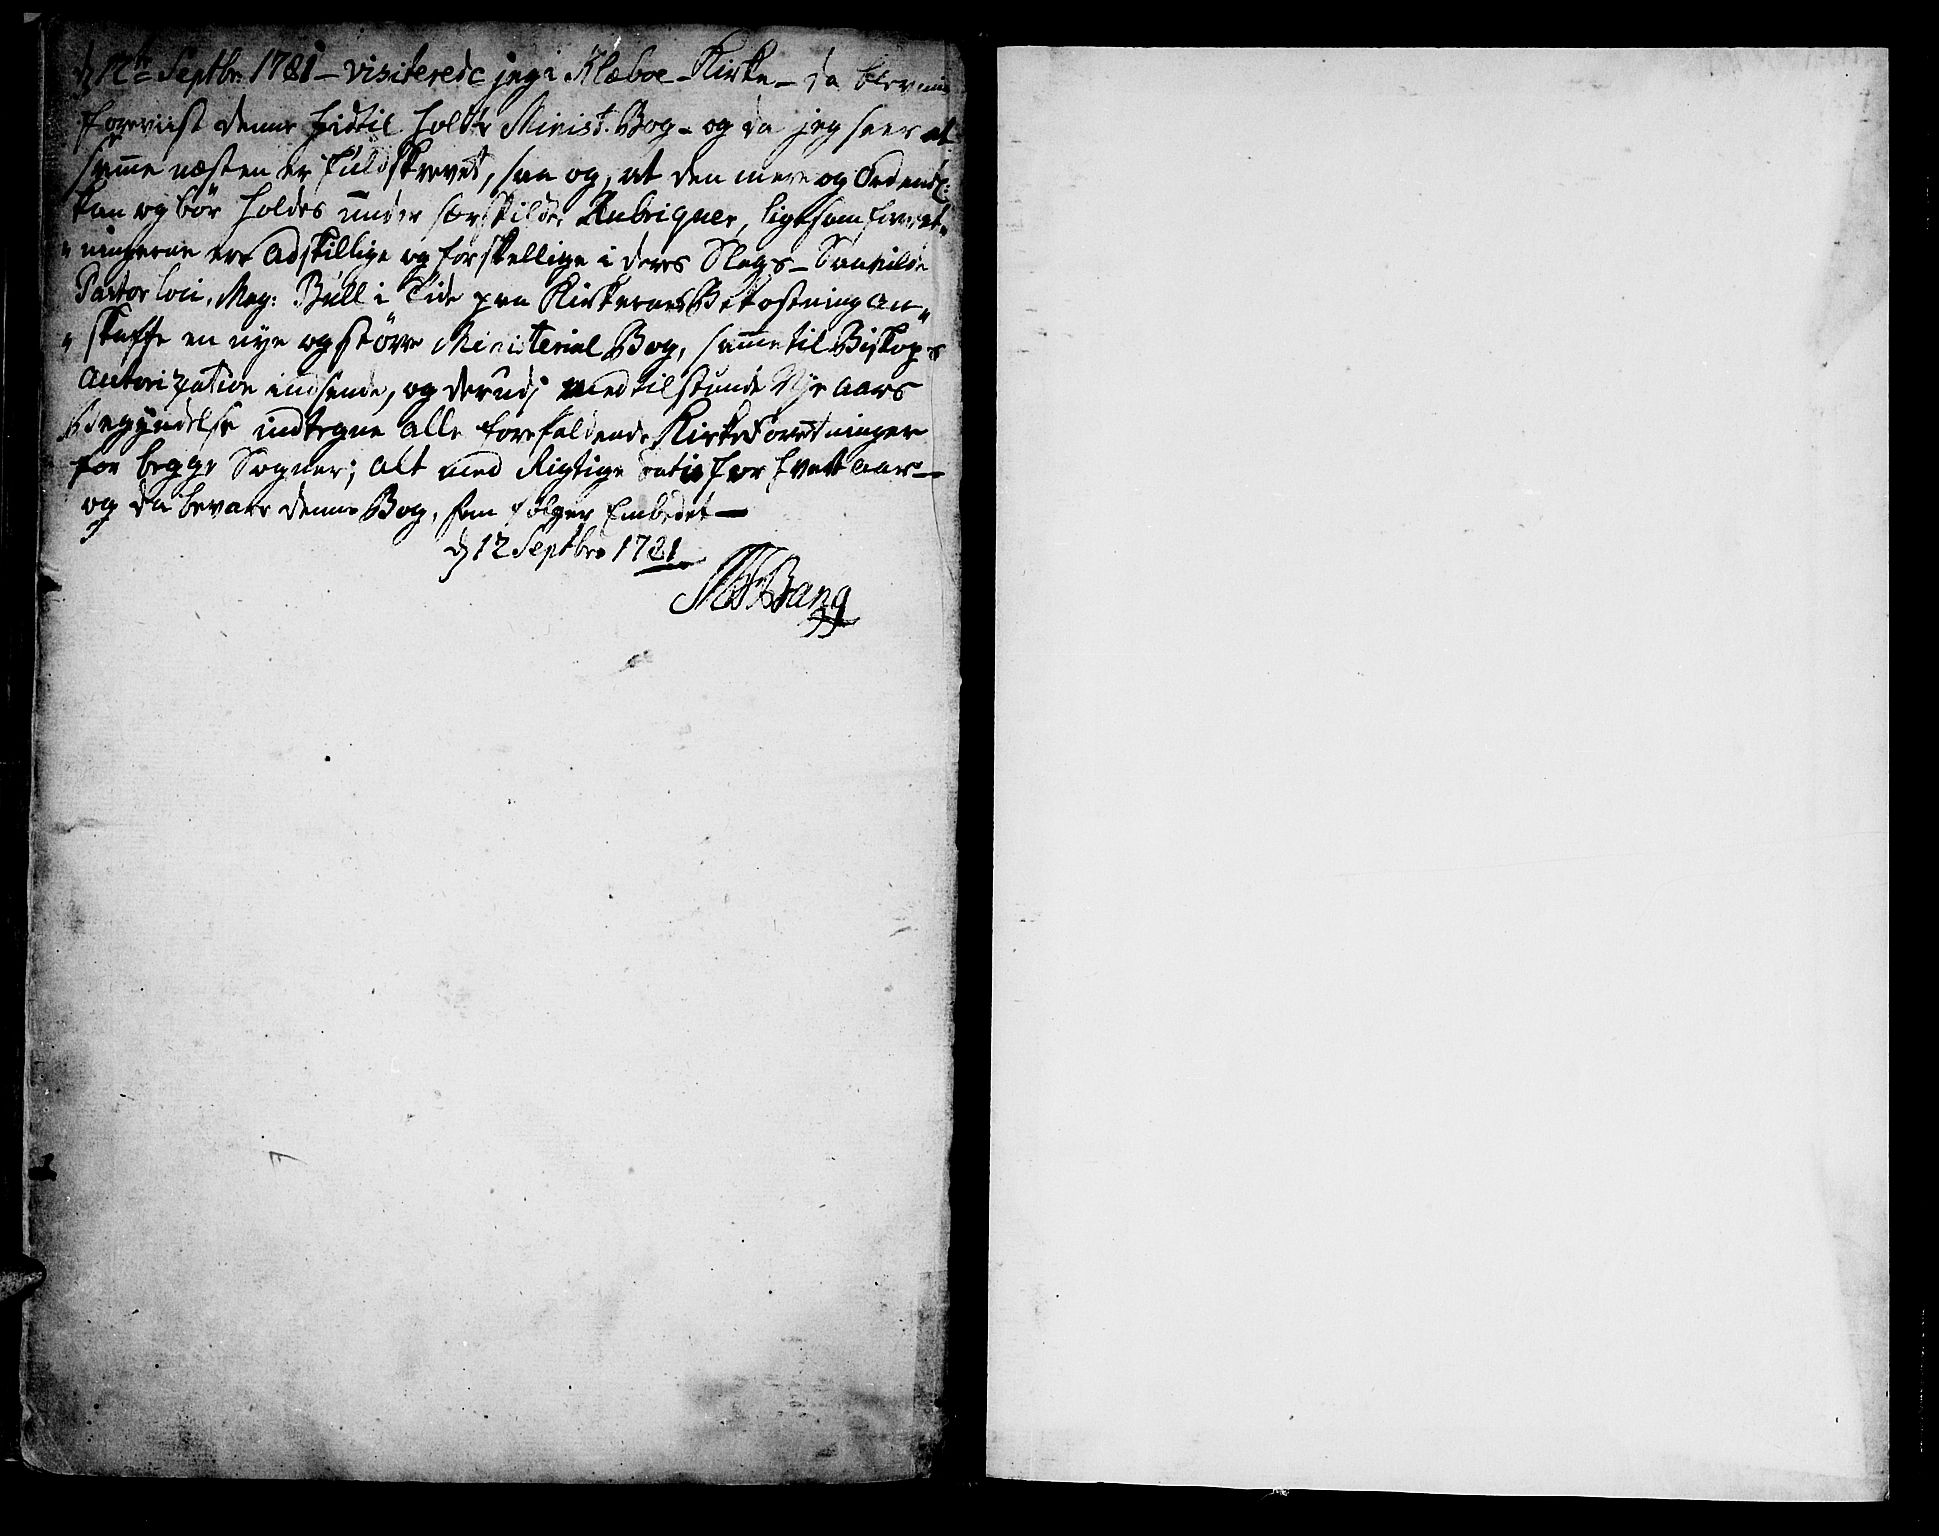 d 12te Septbr. 1781 – visiterede jeg i Klæboe Kirke – da blev mig
foreviist denne hidtil holdte Minist. Bog – og da jeg saae at
samme næsten er fuldskrevet, saa og, at den mere og Ordentl:
kan og bør holdes under særskilde Rubriquer, ligesom forret-
ningerne ere adskillige og forskellige i deres Slags – Saa vilde
Pastor loci, Mag: Bull i Tide paa Kirkernes Bekostning an-
skaffe en nye og større Ministerial Bog, samme til Biskops
Autorization indsende, og derudj med tilstundende Nye Aars
Begyndelse indtegne alle forefaldende Kirke Forretninger
for begge Sogner; alt med Rigtige Datis for hvert Aar –
og da bevare denne Bog, som følger Embedet –
d 12 Septbr 1781
Bang